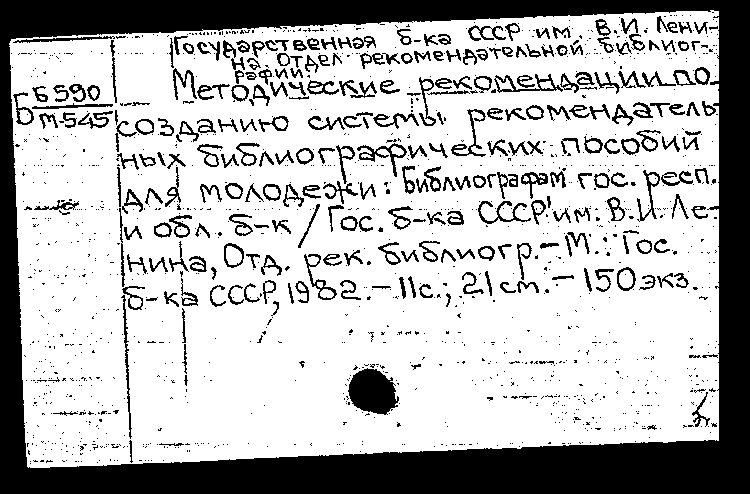 Государственная б-ка СССР им. В.И. Лени-
на. Отдел рекомендательной библиог-
рафии.
Б Б590
m-545
Методические рекомендации по
созданию системы рекомендатель
ных библиографических пособий
для молодежи: Библиографам гос. респ.
и обл. б-к / Гос. б-ка СССР им. В.И. Ле-
нина, Отд. рек. библиогр.– М.: Гос.
б-ка СССР, 1982.– 11с.; 21 cm.– 150 экз.